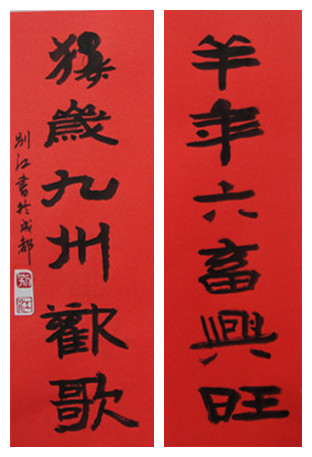 羊年六畜興旺
猴歲九州歡歌
別江書於成都